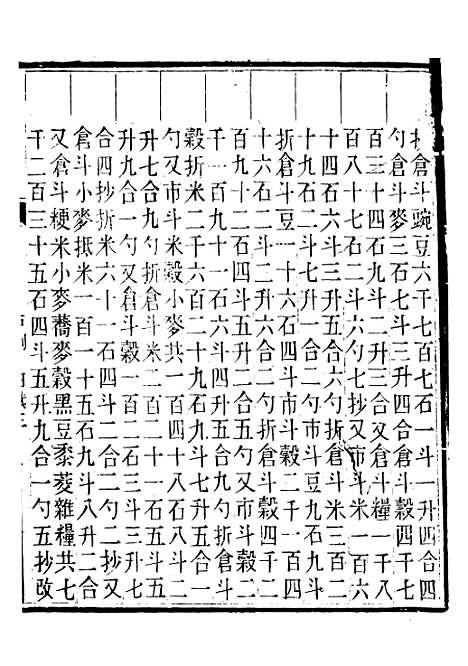 折倉斗豌豆六千七百七石一斗一升四合四
勺倉斗麥三石七斗三升四合折倉斗穀四千七
百三十四石九斗二升三合又倉斗糧一千八
百八十七石四斗六勺七抄又市斗米一百六
十四石六斗三升五合六勺折倉斗米三百二
十九石二斗七升一合二勺市斗豆九石七斗
折倉斗豆一十六石二斗市斗穀二千一百四
十六石二斗二升六合二勺折倉斗穀四千二
百九十二石四斗五升二合五勺又市斗穀二
千一百九十一石六斗四升五合九勺折倉斗
穀折米二千六百二十九石九斗七升五合一
勺又市斗米穀小麥共一百四十八石八斗二
升七合九勺折倉斗米二百二十七石一斗五
升九合一勺又倉斗穀一百二石三斗三升七
合四抄折米六十一石四斗二合二勺二抄又
倉斗小麥抵米一百一十五石九斗八升二合
又倉斗粳米小麥蕎麥穀黑豆黍䅟雜糧共七
千二百三十五石四斗五升九合一勺五抄改